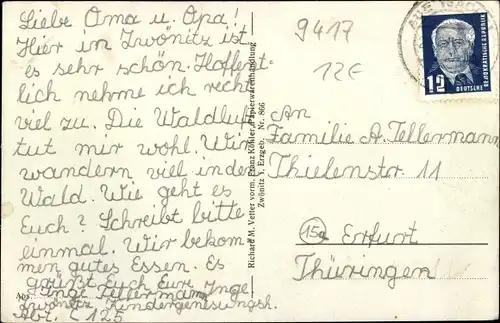 Liebe Oma u. Opa!
Hier in Zwönitz ist
es sehr schön. Hoffent-
lich nehme ich recht
viel zu. Die Waldluft
tut mir wohl. Wir
wandern viel in den
Wald. Wie geht es
Euch? Schreibt bitte
einmal. Wir bekom
men gutes Essen. Es
grüßt Euch Eure Inge
Inge Tellermann
Zwönitz Kindergenesungsh.
Abt. C 125
Richard M. Vetter vorm. Franz Köhler, Papierwarenhandlung
Zwönitz i. Erzgeb. Nr. 866
9417
12E
DEUTSCHE
DEMOKRATISCHE REPUBLIK
12
An
Familie A. Tellermann
Thielenstr. 11
15a Erfurt
Thüringen